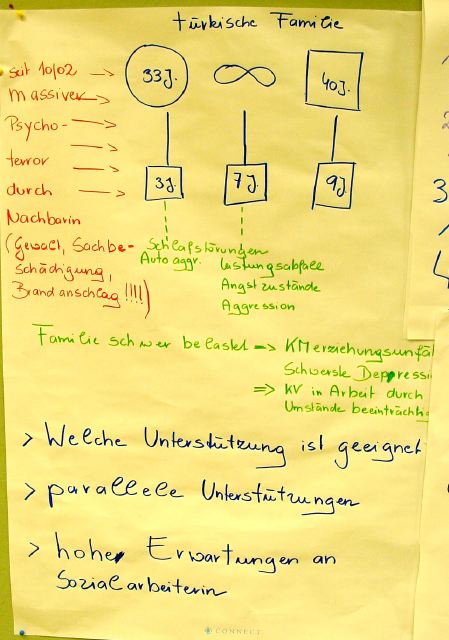 türkische Familie
seit 10/02
massiver
Psycho-
terror
durch
Nachbarin
(Gewalt, Sachbe-
schädigung,
Brandanschlag!!!!)
33J.
40J.
3J.
7J.
9J.
Schlafstörungen
Autoaggr.
Leistungsabfälle
Angstzustände
Aggression
Familie schwer belastet => KM erziehungsunfä
Schwerste Depressi
=> KV in Arbeit durch
Umstände beeinträchtig
> Welche Unterstützung ist geeignet
> parallele Unterstützungen
> hohe Erwartungen an
Sozialarbeiterin
CONNECT